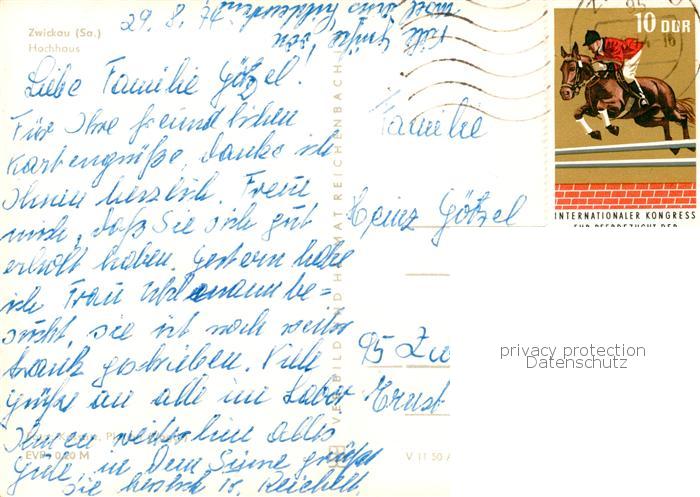 Zwickau (Sa.)
Hochhaus
29. 8. 74
Liebe Familie Götzel!
Für Ihre freundlichen
Kartengrüße, danke ich
Ihnen herzlich. Freue
mich, daß Sie sich gut
erholt haben. Gestern habe
ich Frau Uhlemann be=
sucht, sie ist noch weiter
krank geschrieben. Viele
Grüße an alle im Labor
Ihnen weiterhin alles
Gute, in dem Sinne grüßt
Sie herzlich Reichelt.
EVP 0,20 M
VERLAG BILD UND HEIMAT REICHENBACH
V 11 50 A
Familie
Heinz Götzel
95 Zw
Ernst
10 DDR
INTERNATIONALER KONGRESS
FÜR PFERDEZUCHT DER
privacy protection
Datenschutz